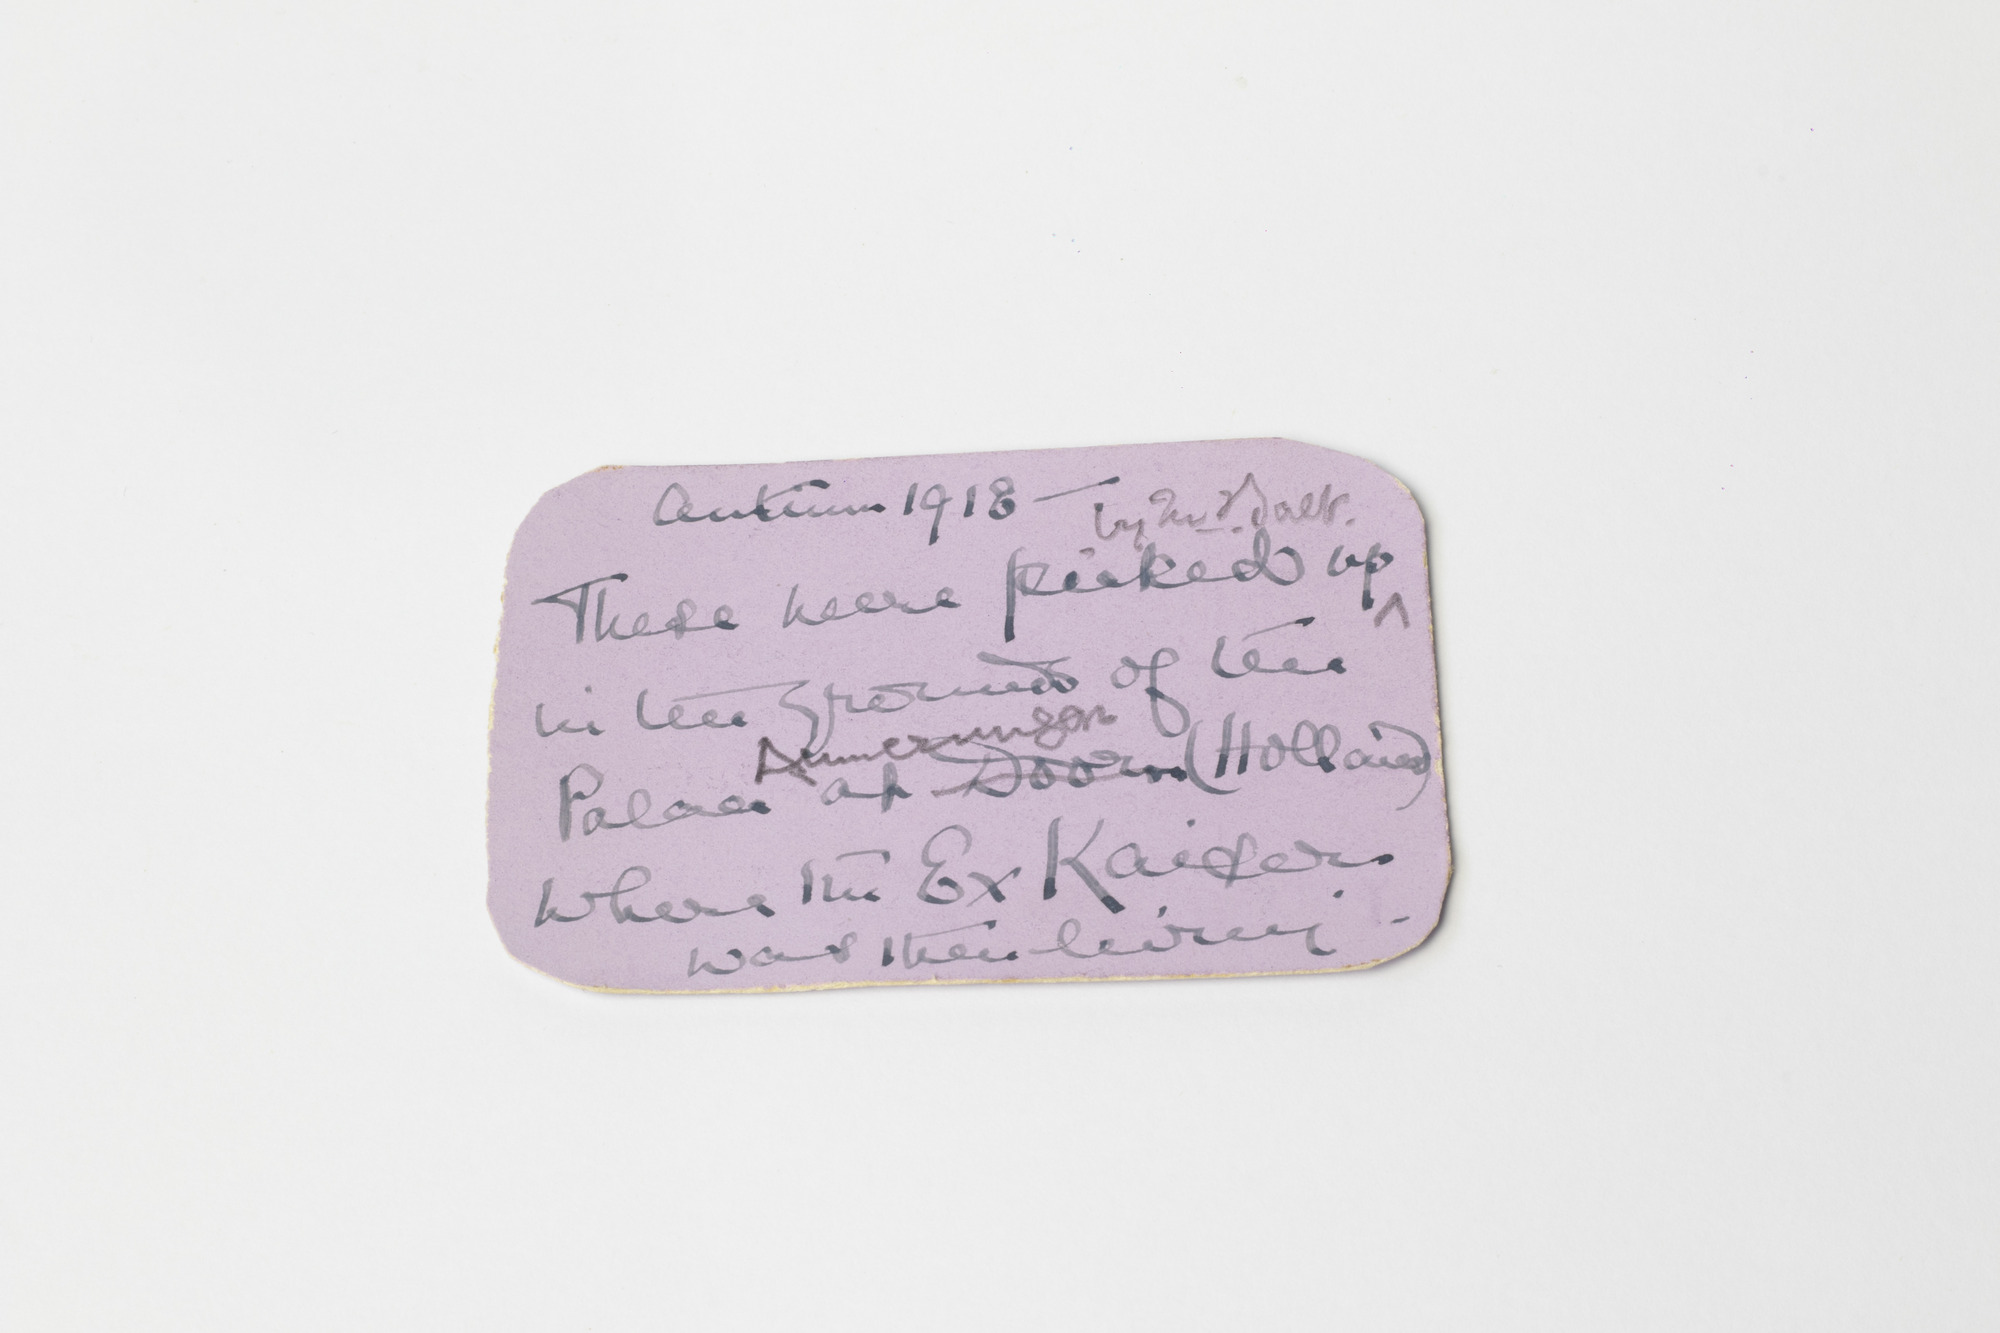 Autumn 1918 —
by Mr
These were picked up ^
in the grounds of the
Amerungen
Palace at Doorn (Holland)
where the Ex Kaiser
was then living -